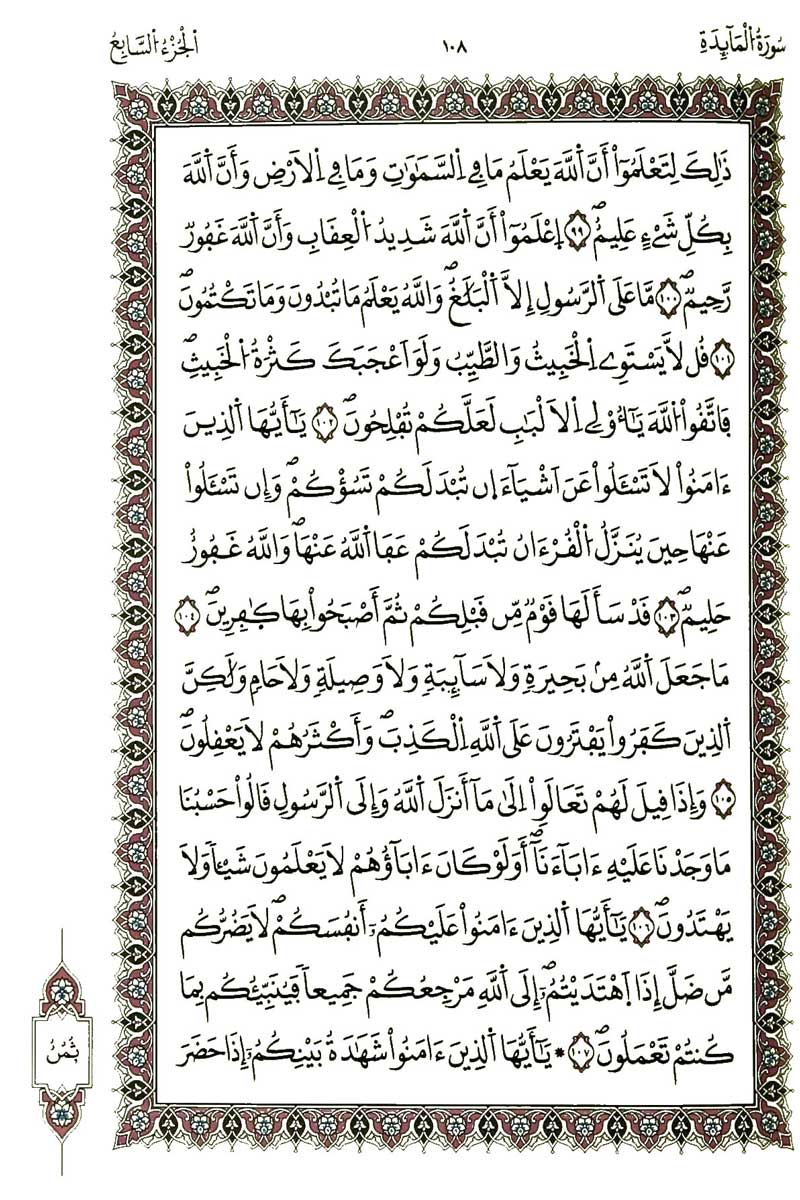 سُورَةُ الْمَآئِدَةِ ١٠٨ الْجُزْءُ السَّابِعُ
ذَٰلِكَ لِتَعْلَمُوٓاْ أَنَّ اَ۬للَّهَ يَعْلَمُ مَا فِے اِ۬لسَّمَٰوَٰتِ وَمَا فِے اِ۬لَارْضِ وَأَنَّ اَ۬للَّهَ
بِكُلِّ شَےْءٍ عَلِيمٌۖ ٩٩ اِ۪عْلَمُوٓاْ أَنَّ اَ۬للَّهَ شَدِيدُ اُ۬لْعِقَابِ وَأَنَّ اَ۬للَّهَ غَفُورٌ
رَّحِيمٌۖ ١٠٠ مَّا عَلَى اَ۬لرَّسُولِ إِلَّا اَ۬لْبَلَٰغُۖ وَاللَّهُ يَعْلَمُ مَا تُبْدُونَ وَمَا تَكْتُمُونَۖ
١٠١ قُل لَّا يَسْتَوِے اِ۬لْخَبِيثُ وَالطَّيِّبُ وَلَوَ اَعْجَبَكَ كَثْرَةُ اُ۬لْخَبِيثِۖ
فَاتَّقُواْ اُ۬للَّهَ يَٰٓأُوْلِے اِ۬لَالْبَٰبِ لَعَلَّكُمْ تُفْلِحُونَۖ ١٠٢ يَٰٓأَيُّهَا اَ۬لذِينَ
ءَامَنُواْ لَا تَسْـَٔلُواْ عَنَ اَشْيَآءَ ا۪ن تُبْدَ لَكُمْ تَسُؤْكُمْۖ وَإِن تَسْـَٔلُواْ
عَنْهَا حِينَ يُنَزَّلُ اُ۬لْقُرْءَانُ تُبْدَ لَكُمْ عَفَا اَ۬للَّهُ عَنْهَاۖ وَاللَّهُ غَفُورٌ
حَلِيمٌۖ ١٠٣ قَدْ سَأَلَهَا قَوْمٌ مِّن قَبْلِكُمْ ثُمَّ أَصْبَحُواْ بِهَا كٰ۪فِرِينَۖ ١٠٤
مَا جَعَلَ اَ۬للَّهُ مِنۢ بَحِيرَةٍ وَلَا سَآئِبَةٍ وَلَا وَصِيلَةٍ وَلَا حَامٍ وَلَٰكِنَّ
اَ۬لذِينَ كَفَرُواْ يَفْتَرُونَ عَلَى اَ۬للَّهِ اِ۬لْكَذِبَۖ وَأَكْثَرُهُمْ لَا يَعْقِلُونَۖ
١٠٥ وَإِذَا قِيلَ لَهُمْ تَعَالَوِاْ اِلَىٰ مَآ أَنزَلَ اَ۬للَّهُ وَإِلَى اَ۬لرَّسُولِ قَالُواْ حَسْبُنَا
مَا وَجَدْنَا عَلَيْهِ ءَابَآءَنَآۖ أَوَلَوْ كَانَ ءَابَآؤُهُمْ لَا يَعْلَمُونَ شَيْـٔاً وَلَا
يَهْتَدُونَۖ ١٠٦ يَٰٓأَيُّهَا اَ۬لذِينَ ءَامَنُواْ عَلَيْكُمُۥٓ أَنفُسَكُمْۖ لَا يَضُرُّكُم
مَّن ضَلَّ إِذَا اَ۪هْتَدَيْتُمُۥٓۖ إِلَى اَ۬للَّهِ مَرْجِعُكُمْ جَمِيعاً فَيُنَبِّئُكُم بِمَا
كُنتُمْ تَعْمَلُونَۖ ١٠٧ * يَٰٓأَيُّهَا اَ۬لذِينَ ءَامَنُواْ شَهَٰدَةُ بَيْنِكُمُۥٓ إِذَا حَضَرَ
ثُمُنُ